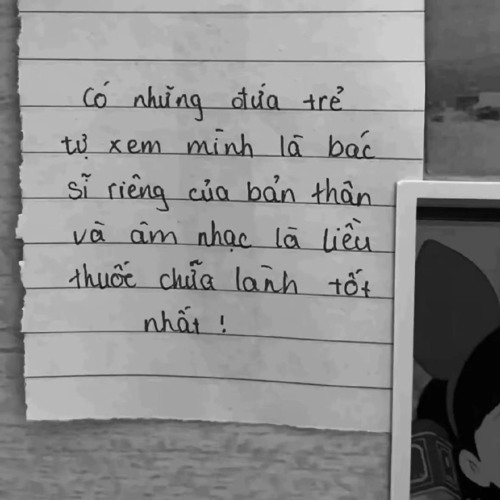 Có những đứa trẻ
tự xem mình là bác
sĩ riêng của bản thân
và âm nhạc là liều
thuốc chữa lành tốt
nhất !